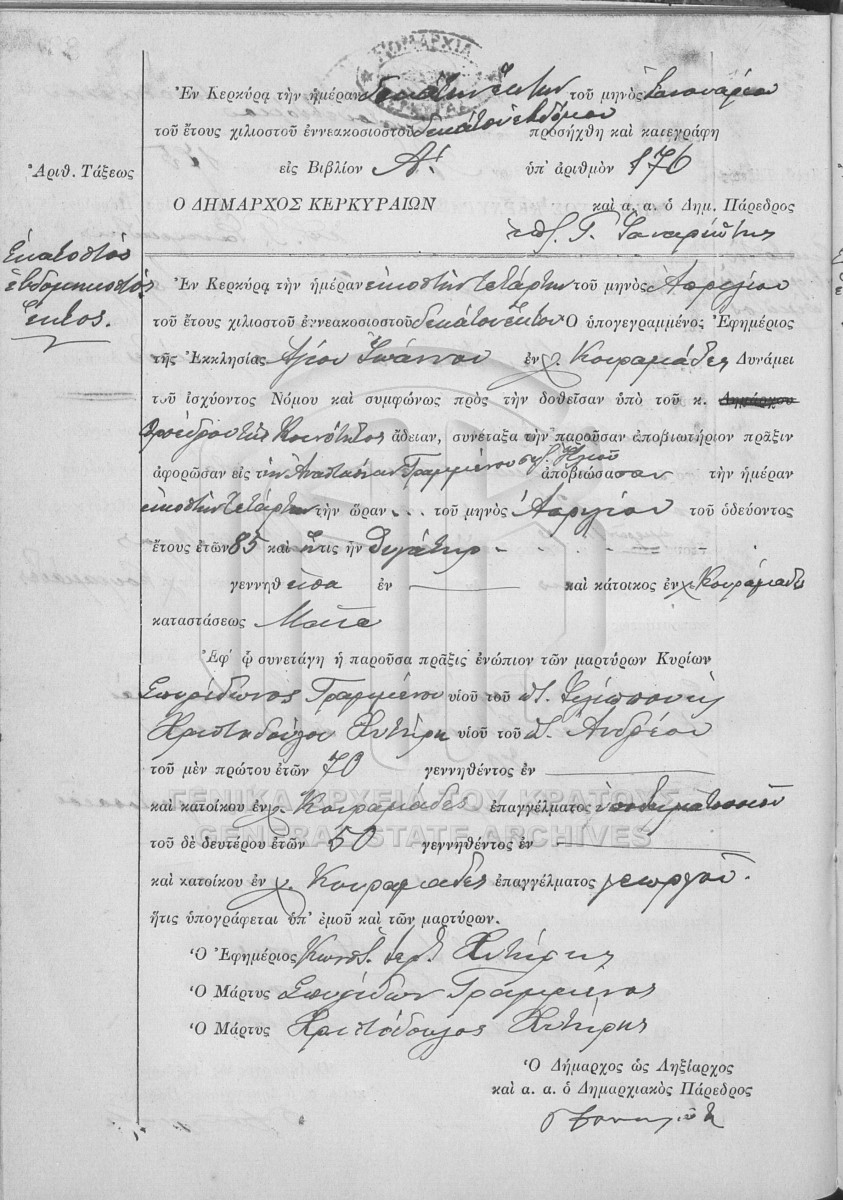 ΔΗΜΑΡΧΙΑ
Ἐν Κερκύρᾳ τὴν ἡμέραν δεκάτην ἕκτην τοῦ μηνὸς Ἰανουαρίου
τοῦ ἔτους χιλιοστοῦ ἐννεακοσιοστοῦ δεκάτου ἑβδόμου προσήχθη καὶ κατεγράφη
Ἀριθ. Τάξεως
εἰς Βιβλίον Α! ὑπ' ἀριθμὸν 176
Ο ΔΗΜΑΡΧΟΣ ΚΕΡΚΥΡΑΙΩΝ καὶ α. α. ὁ Δημ. Πάρεδρος
Γ.
Ἑκατοστὸς
ἑβδομηκοστὸς
ἕκτος.
Ἐν Κερκύρᾳ τὴν ἡμέραν εἰκοστὴν τετάρτην τοῦ μηνὸς Ἀπριλίου
τοῦ ἔτους χιλιοστοῦ ἐννεακοσιοστοῦ δεκάτου ἕκτου Ὁ ὑπογεγραμμένος Ἐφημέριος
τῆς Ἐκκλησίας Ἁγίου Ἰωάννου ἐν χ. Κουραμάδες Δυνάμει
τοῦ ἰσχύοντος Νόμου καὶ συμφώνως πρὸς τὴν δοθεῖσαν ὑπὸ τοῦ κ. Δημάρχου
Προέδρου τῆς Κοινότητος ἄδειαν, συνέταξα τὴν παροῦσαν ἀποβιωτήριον πρᾶξιν
ἀφορῶσαν εἰς τὴν Ἀναστασίαν Γραμμένου ἀποβιώσασαν τὴν ἡμέραν
εἰκοστὴν τετάρτην τὴν ὥραν . . . τοῦ μηνὸς Ἀπριλίου τοῦ ὁδεύοντος
ἔτους ἐτῶν 85 καὶ ἥτις ἦν θυγάτηρ
γεννηθεῖσα ἐν — καὶ κάτοικος ἐν χ. Κουραμάδες
καταστάσεως
Ἐφ' ᾧ συνετάγη ἡ παροῦσα πρᾶξις ἐνώπιον τῶν μαρτύρων Κυρίων
Σπυρίδωνος Γραμμένου υἱοῦ τοῦ
Χριστοδούλου Χυτήρη υἱοῦ τοῦ π. Ἀνδρέου
τοῦ μὲν πρώτου ἐτῶν 70 γεννηθέντος ἐν —
καὶ κατοίκου ἐν χ. Κουραμάδες ἐπαγγέλματος ὑποδηματοποιοῦ
ΓΕΝΙΚΑ ΑΡΧΕΙΑ ΤΟΥ ΚΡΑΤΟΥΣ
GENERAL STATE ARCHIVES
τοῦ δὲ δευτέρου ἐτῶν 50 γεννηθέντος ἐν —
καὶ κατοίκου ἐν χ. Κουραμάδες ἐπαγγέλματος γεωργοῦ.
ἥτις ὑπογράφεται ὑπ' ἐμοῦ καὶ τῶν μαρτύρων.
Ὁ Ἐφημέριος Κωνστ. ἱερ. Χυτήρης
Ὁ Μάρτυς Σπυρίδων Γραμμένος
Ὁ Μάρτυς Χριστόδουλος Χυτήρης
Ὁ Δήμαρχος ὡς Ληξίαρχος
καὶ α. α. ὁ Δημαρχιακὸς Πάρεδρος